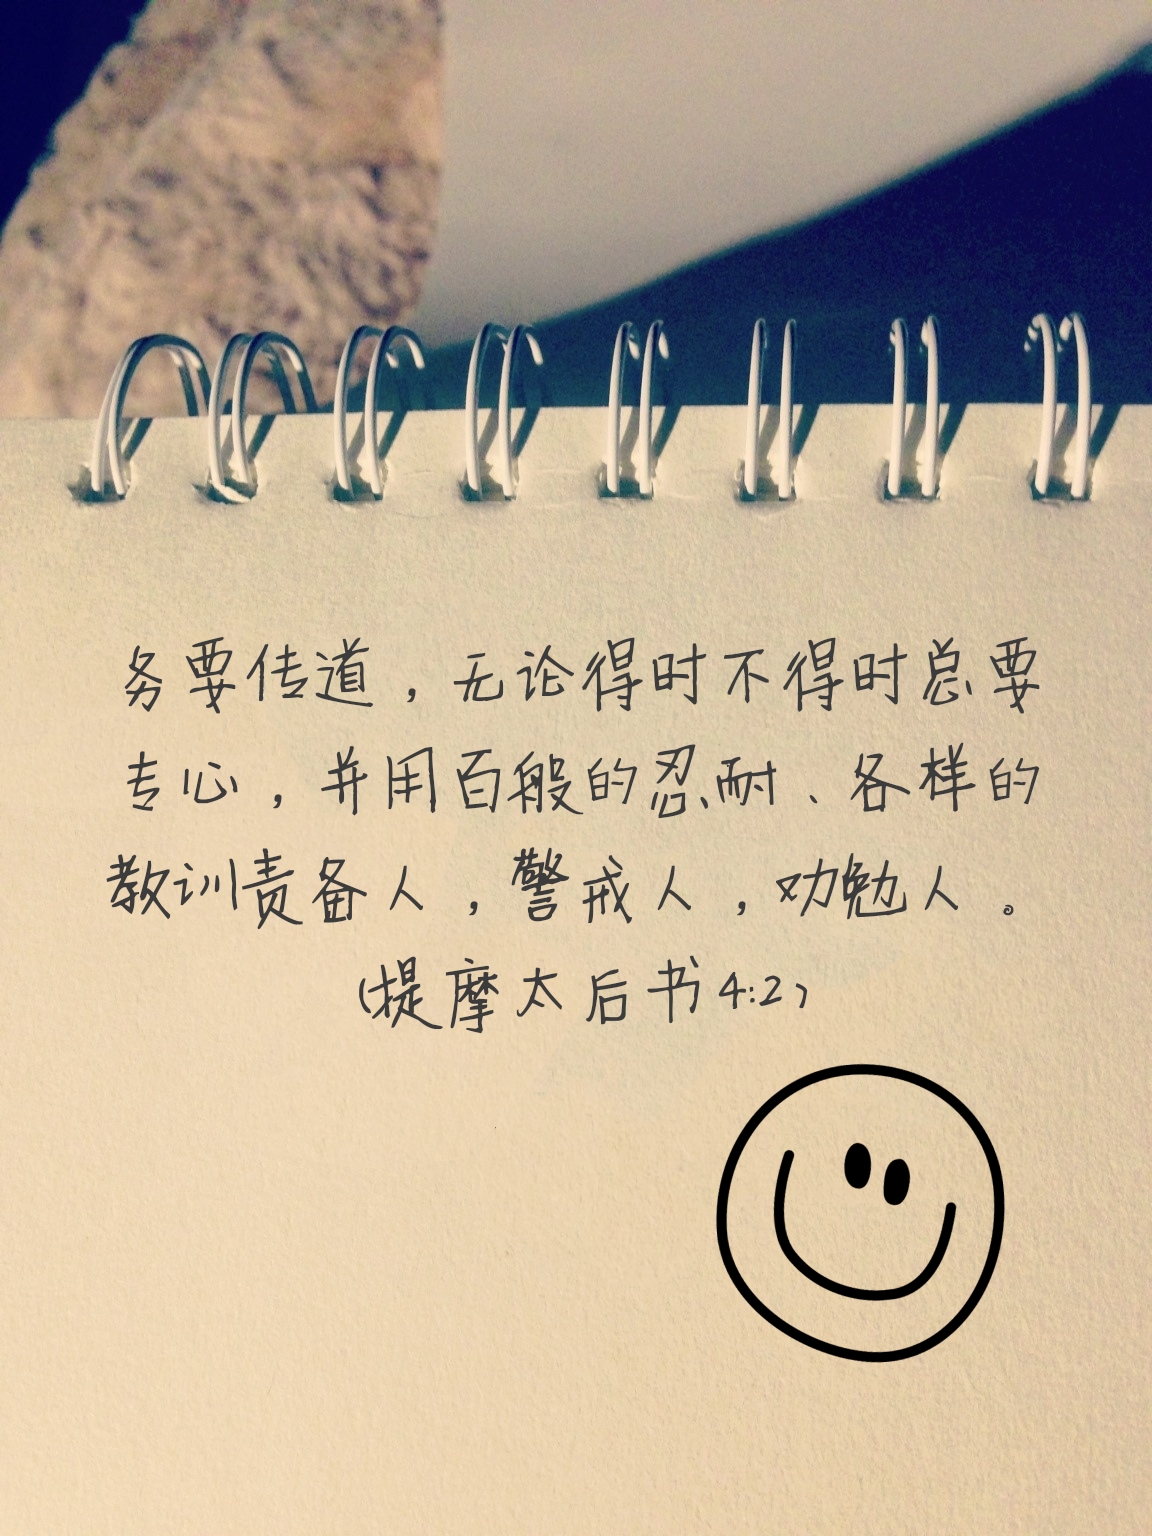 务要传道，无论得时不得时总要
专心，并用百般的忍耐、各样的
教训责备人，警戒人，劝勉人。
(提摩太后书4:2)